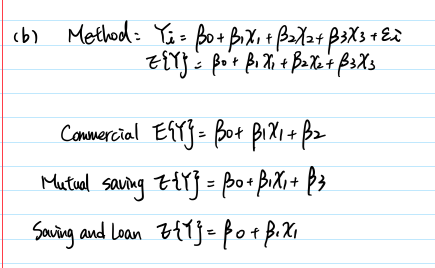 (b) Method: Yi = β0 + β1X1 + β2X2 + β3X3 + εi
E{Y} = β0 + β1X1 + β2X2 + β3X3
Commercial E{Y} = β0 + β1X1 + β2
Mutual saving E{Y} = β0 + β1X1 + β3
Saving and Loan E{Y} = β0 + β1X1